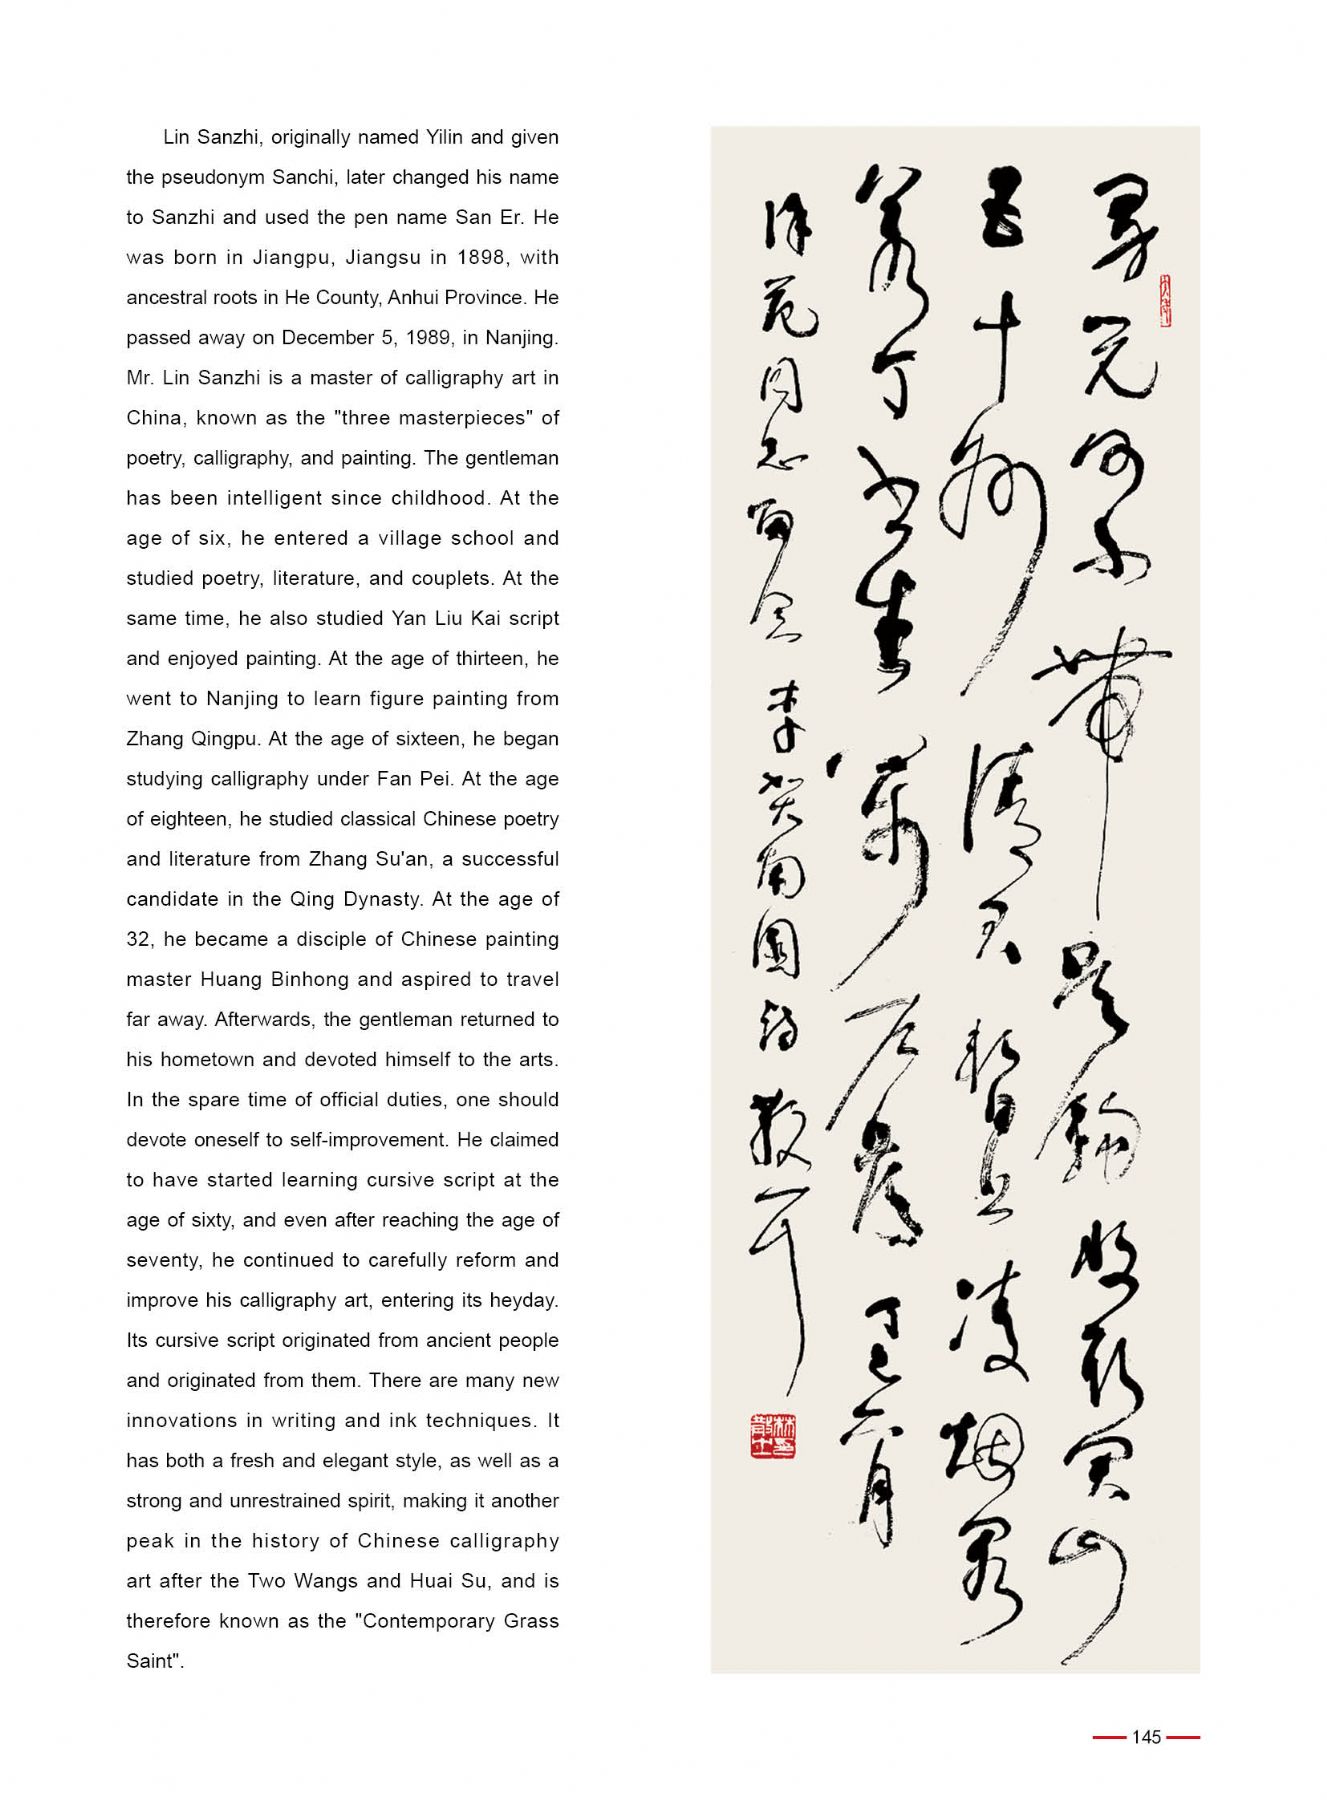 Lin Sanzhi, originally named Yilin and given
the pseudonym Sanchi, later changed his name
to Sanzhi and used the pen name San Er. He
was born in Jiangpu, Jiangsu in 1898, with
ancestral roots in He County, Anhui Province. He
passed away on December 5, 1989, in Nanjing.
Mr. Lin Sanzhi is a master of calligraphy art in
China, known as the "three masterpieces" of
poetry, calligraphy, and painting. The gentleman
has been intelligent since childhood. At the
age of six, he entered a village school and
studied poetry, literature, and couplets. At the
same time, he also studied Yan Liu Kai script
and enjoyed painting. At the age of thirteen, he
went to Nanjing to learn figure painting from
Zhang Qingpu. At the age of sixteen, he began
studying calligraphy under Fan Pei. At the age
of eighteen, he studied classical Chinese poetry
and literature from Zhang Su'an, a successful
candidate in the Qing Dynasty. At the age of
32, he became a disciple of Chinese painting
master Huang Binhong and aspired to travel
far away. Afterwards, the gentleman returned to
his hometown and devoted himself to the arts.
In the spare time of official duties, one should
devote oneself to self-improvement. He claimed
to have started learning cursive script at the
age of sixty, and even after reaching the age of
seventy, he continued to carefully reform and
improve his calligraphy art, entering its heyday.
Its cursive script originated from ancient people
and originated from them. There are many new
innovations in writing and ink techniques. It
has both a fresh and elegant style, as well as a
strong and unrestrained spirit, making it another
peak in the history of Chinese calligraphy
art after the Two Wangs and Huai Su, and is
therefore known as the "Contemporary Grass
Saint".
男兒何不帶吳鉤收取關山
五十州請君暫上凌烟閣
若个書生萬戶侯丁巳六月
同志李賀南園詩散耳
林散之印
145